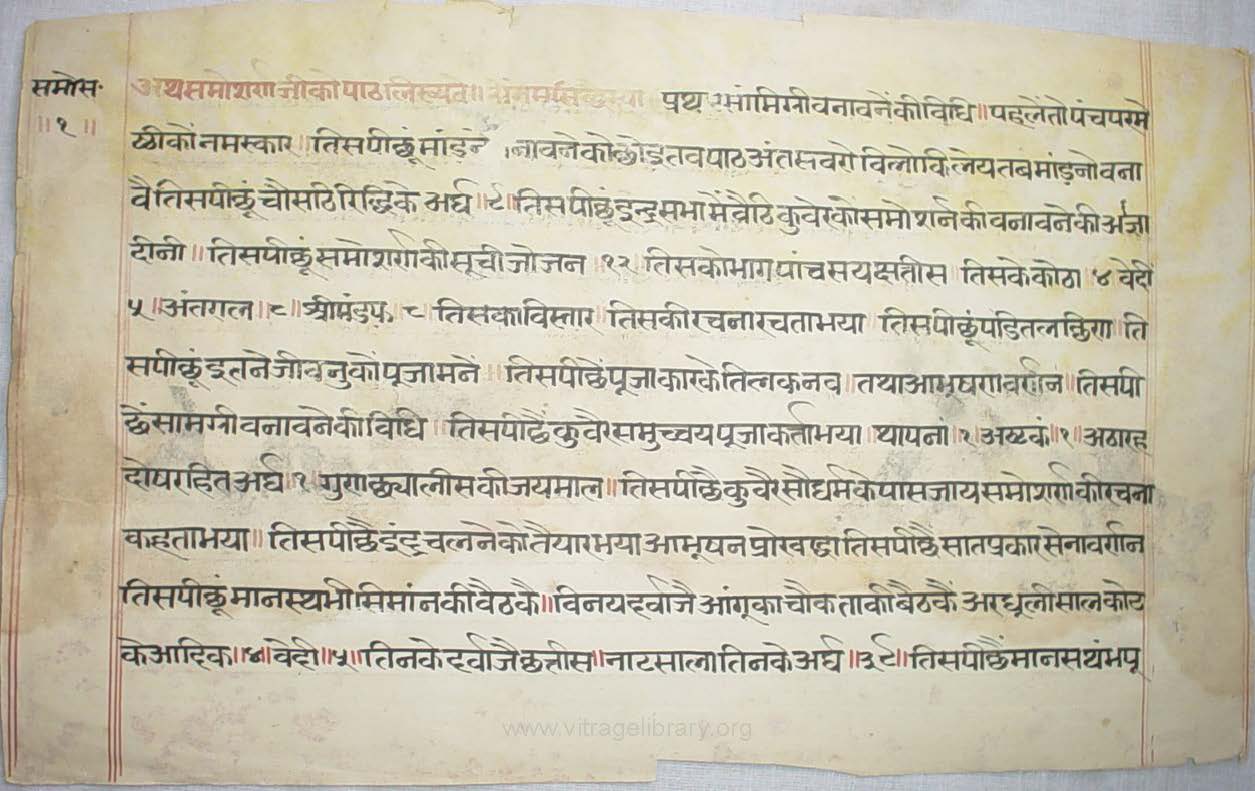 समोस॰
॥१॥
अथसमोशर्णजीकोपाठलिख्यते॥ प्रथ सामिग्रीवनावनेंकीविधि॥पहलेंतौपंचपरमे
ष्ठीकोंनमस्कार॥तिसपीछूंमांडनें नावनेकोछोडतवपाठअंतसवरोविलोकिलेयतबमांडनोवना
वैतिसपीछूंचौसठिरिद्धिकेअर्घ॥९॥तिसपीछूंइन्द्रसभामेंवैठिकुवेरकोंसमोशर्नकीवनावनेकीअज्ञा
दीनी॥तिसपीछूंसमोशर्णकीसूचीजोजन॥१२॥तिसकोभागपांचसयछत्तीस तिसकेकोठा॥४वेदी
५॥अंतराल॥८॥श्रीमंडप॥८॥तिसकाविस्तार॥तिसकीरचनारचताभया तिसपीछूंपंडितलछिण॥ति
सपीछूंइतनेजीवनुकोंपूजामनें॥तिसपीछेंपूजाकारकेतिलकनव॥तथाआभूषणवर्णन॥तिसपी
छेंसामग्रीवनावनेकीविधि तिसपीछैंकुवैरसमुच्चयपूजाकर्ताभया॥थापनां॥१॥अष्टकं॥१॥अठारह
दोषरहितअर्घ॥१॥गुणछ्यालीसकीजयमाल॥तिसपीछैकुवैरसौधर्मकेपासजायसमोशर्णकीरचना
कहताभया॥तिसपीछैइंद्रचलनेकोतैयारभयाआभूषन तिसपीछैंसातप्रकारसेनावर्णन
तिसपीछूंमानस्थंभी कीवैठकै॥विनयदर्वाजैआंगूकाचौकताकीबैठकैंअरधूलीसालकोट
केआदिक॥४॥वेदी॥५॥तिनकेदर्वाजैछत्तीस॥नाटसालातिनकेअर्घ॥३९॥तिसपीछैंमानसथंभपू
www.vitragelibrary.org